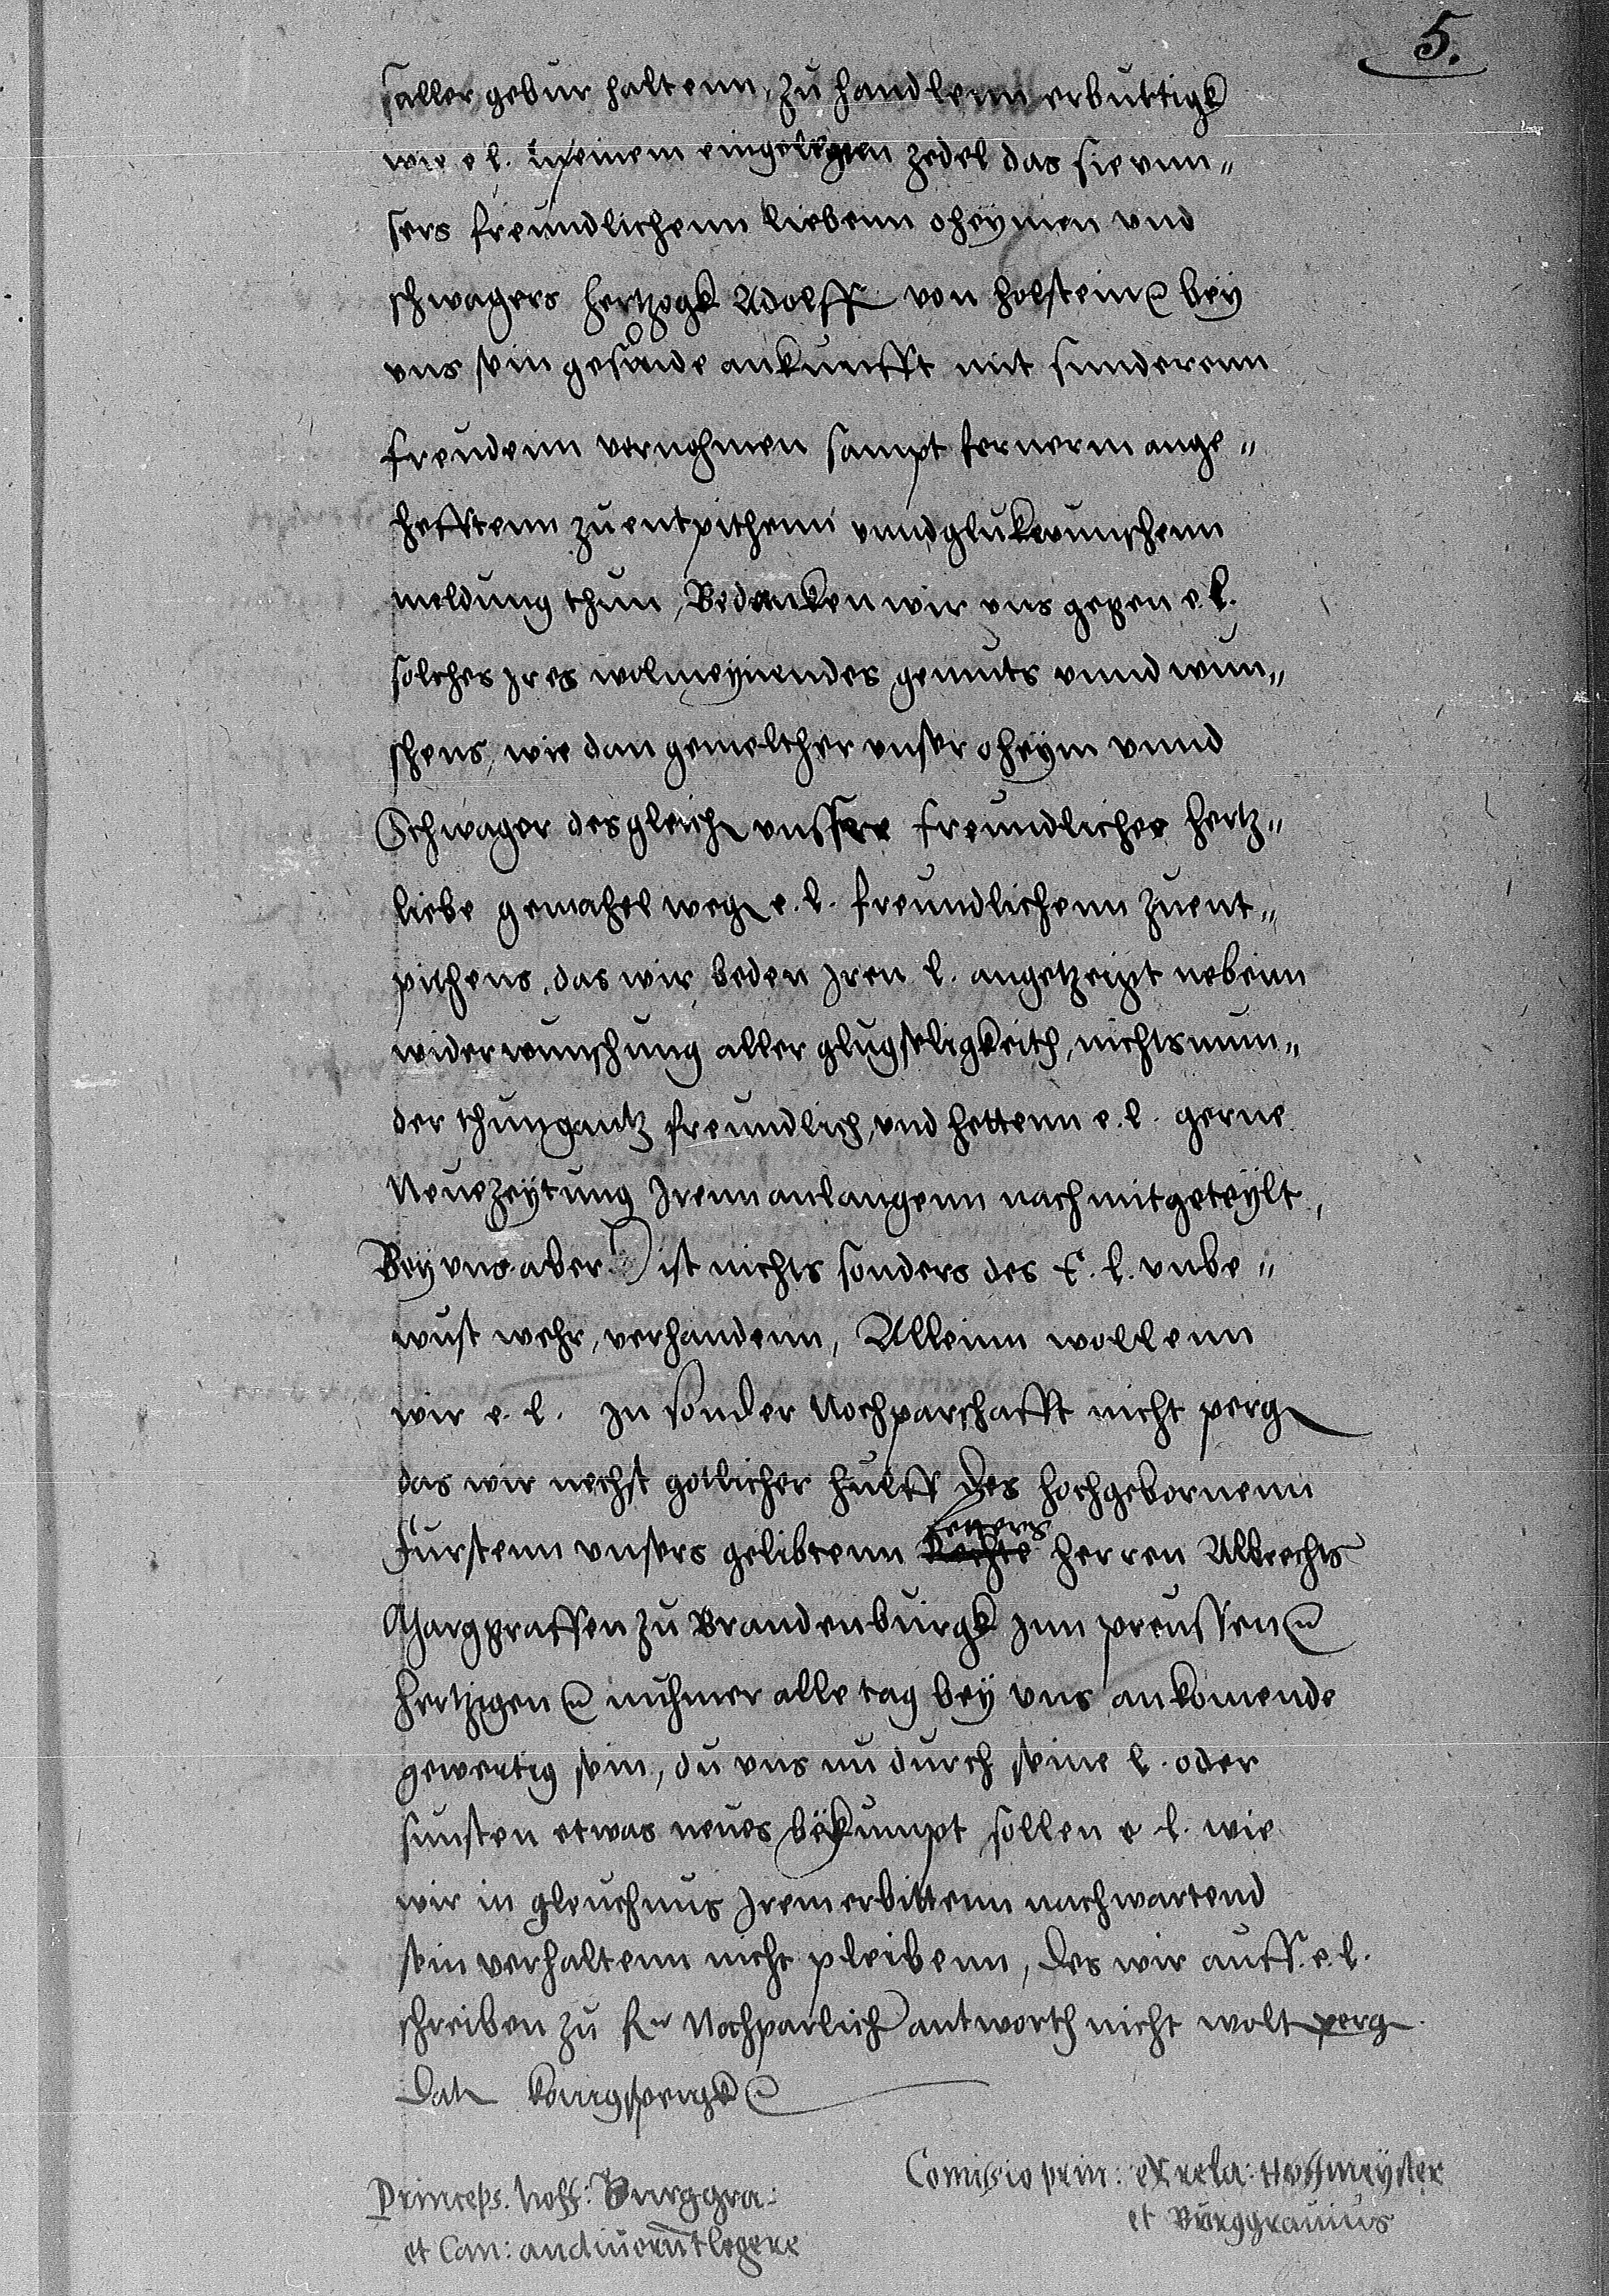 5.
aller gebur haltenn, zu handlenn erbuttigk
wie e l. in einem eingelegten zedel das sie vnn„
sers freundlichenn liebenn oheymen vnd
schwagers hertzogk Adolff von holstein bey
vns sein gesunde ankunfft mit sunderenn
freudenn vernohmen sampt fernerm ange„
hefftenn zuentpithenn vnnd glukwunschenn
meldung thun, Bedanken wir vns gegen e. l.
solches jres wolmeynendes gemuts vnnd wun„
schens, wie dan gemelther vnser oheym vnnd
Schwager desgleich vnssere freundliche hertz„
liebe gemahel wegen e. l. freundlichenn zuent„
pithens, das wir beden jren l. angetzeigt nebenn
widerwunschung aller glugseligkeith, nichtsmin„
der thun gantz freundlich, vnd hettenn e. l. gerne
Neuezeytung jrenn anlangenn nach mitgeteylt,
Bey vns aber ist nichts sonders des E. l. vnbe„
wust wehr, verhandenn, Alleinn wollenn
wir e. l. zu sonder Nochparschafft nicht pergen
das wir nechst gotlicher hulff des hochgebornenn
Furstenn vnsers gelibtenn vetters herren Albrechts
Marggraffen zu Brandenburgk jnn preussen
hertzigen nuhmer alle tag bey vns ankomende
gewertig sein, du vns nu durch seine l. oder
sunsten etwas neues bekumpt sollen e l. wie
wir in gleuchnus jrem erbittenn nach wartend
sein verhaltenn nicht pleibenn, des wir auff e. l.
schreiben zu Nochparlich antworth nicht wolt pergen.
Datum konigspergk
Comissio prin: ex rela: Hoffmeyster
et Burggrauius
Princeps. hoff: Burggra:
et Can: audiuerunt legere